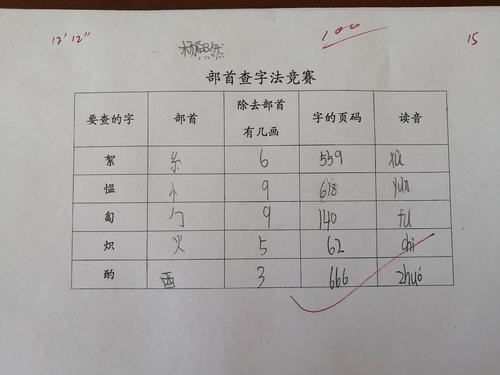 12'12"
100
15
部首查字法竞赛
要查的字 部首 除去部首有几画 字的页码 读音
絮 糸 6 559 xù
愠 忄 9 618 yùn
匐 勹 9 140 fú
炽 火 5 62 chì
酌 酉 3 666 zhuó